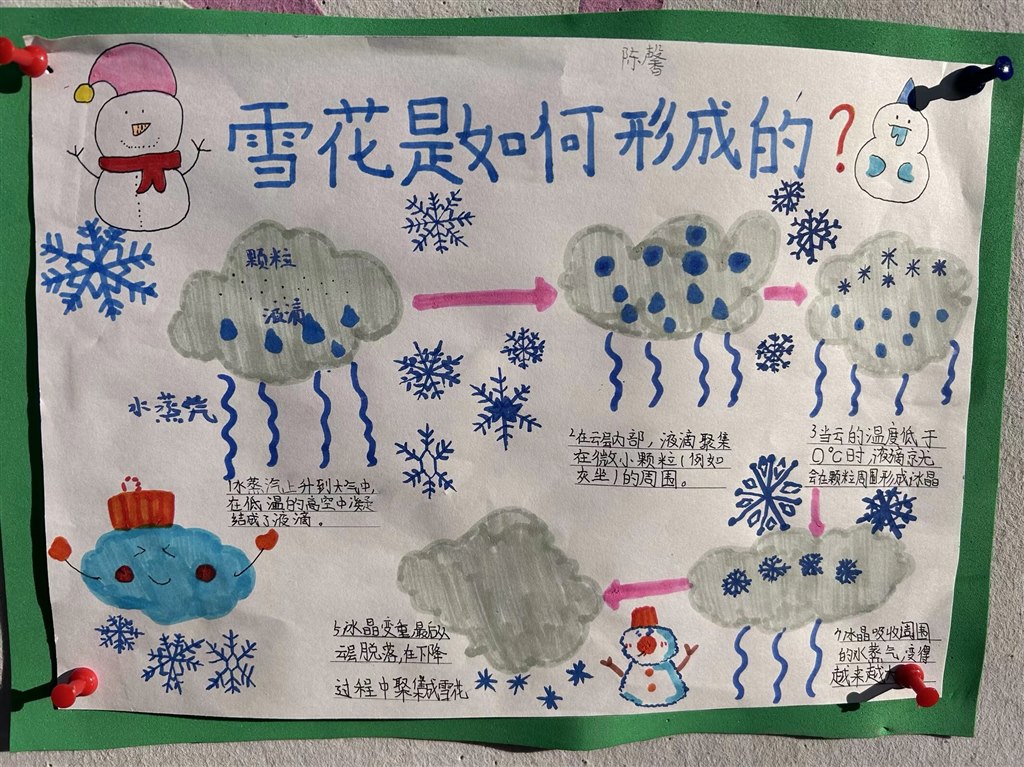 陈馨
雪花是如何形成的?
颗粒
液滴
水蒸汽
1水蒸汽上升到大气中,
在低温的高空中凝
结成了液滴。
2在云层内部,液滴聚集
在微小颗粒(例如
灰尘)的周围。
3当云的温度低于
0℃时,液滴就
会在颗粒周围形成冰晶
4冰晶吸收周围
的水蒸气,变得
越来越
5冰晶变重最后从
云层脱落,在下降
过程中聚集成雪花